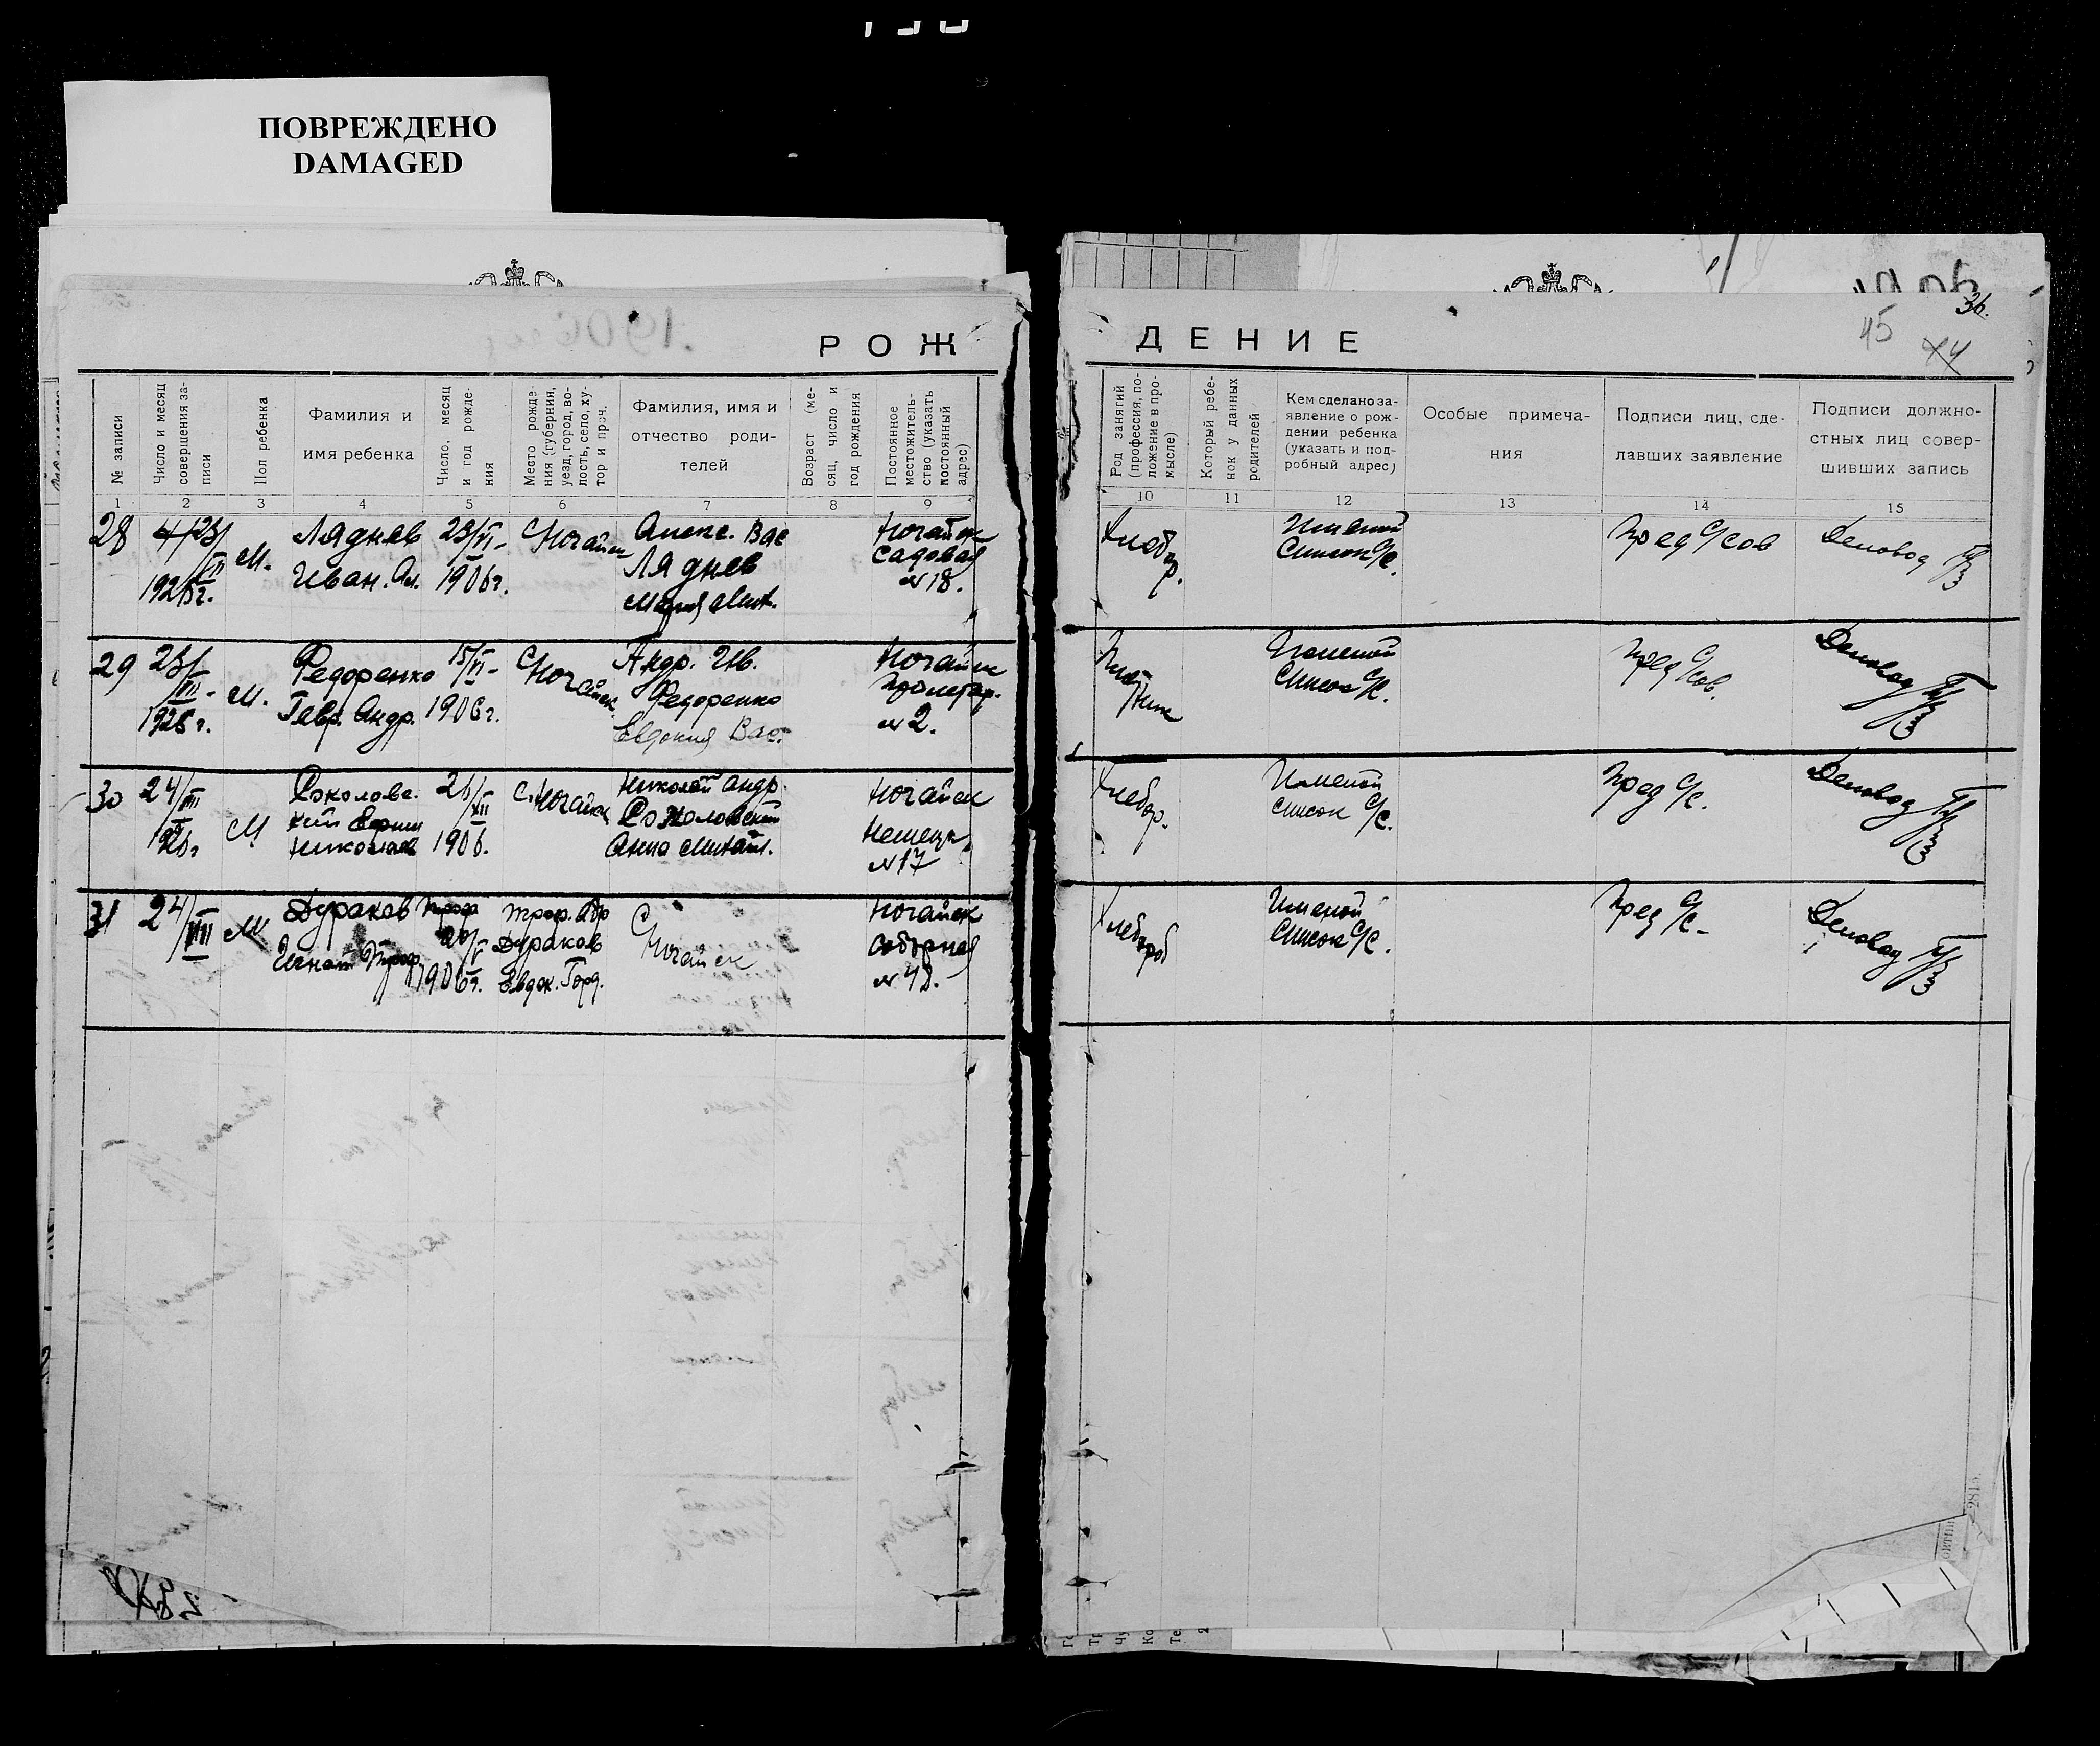 ПОВРЕЖДЕНО
DAMAGED
1906
36.
45
РОЖ
ДЕНИЕ
№ записи
Число и месяц совершения за-
писи
Пол ребенка
Фамилия и
имя ребенка
Число, месяц
и год рожде-
ния
Место рожде-
ния (губерния,
уезд, город, во-
лость, село, ху-
тор и проч.
Фамилия, имя и
отчество роди-
телей
Возраст (ме-
сяц, число и
год рождения
Постоянное
местожитель-
ство (указать
постоянный
адрес)
Род занятий
(профессия, по-
ложение в про-
мысле)
Который ребе-
нок у данных
родителей
Кем сделано за-
явление о рож-
дении ребенка
(указать и под-
робный адрес)
Особые примеча-
ния
Подписи лиц, сде-
лавших заявление
Подписи должно-
стных лиц совер-
шивших запись
1 2 3 4 5 6 7 8 9
10 11 12 13 14 15
28
М.
Ляднев
Иван. Ал.
1906г.
С Ногайск
Алекс. Вас
Ляднев
Мария
Ногайск
Садовая
№ 18.
Хлебор.
Именой
Список С/С.
Пред С/сов
Деловод
29
23/VIII-
1925 г.
М.
Федоренко
Гавр. Андр.
15/VI-
1906г.
С Ногайск
Андр. Ив.
Федоренко
Евдокия Вас.
Ногайск
Пролетар.
№ 2.
Именой
Список С/С.
Пред С/сов.
Деловод
30
24/VIII
М
Соколовс-
кий
Николаев
21/XII
1906.
С. Ногайск
Николай Андр.
Соколовский
Анна Михайл.
Ногайск
Немецк.
№ 17
Хлебор.
Именой
список С/С.
Пред С/С.
Деловод
31
24/VIII
М
Дураков
Игнат Троф
20/V
1906г.
Троф.
Дураков
Евдок. Горд.
С Ногайск
Ногайск
Соборная
№ 48.
Хлебороб
Именой
Список С/С.
Пред С/С-
Деловод